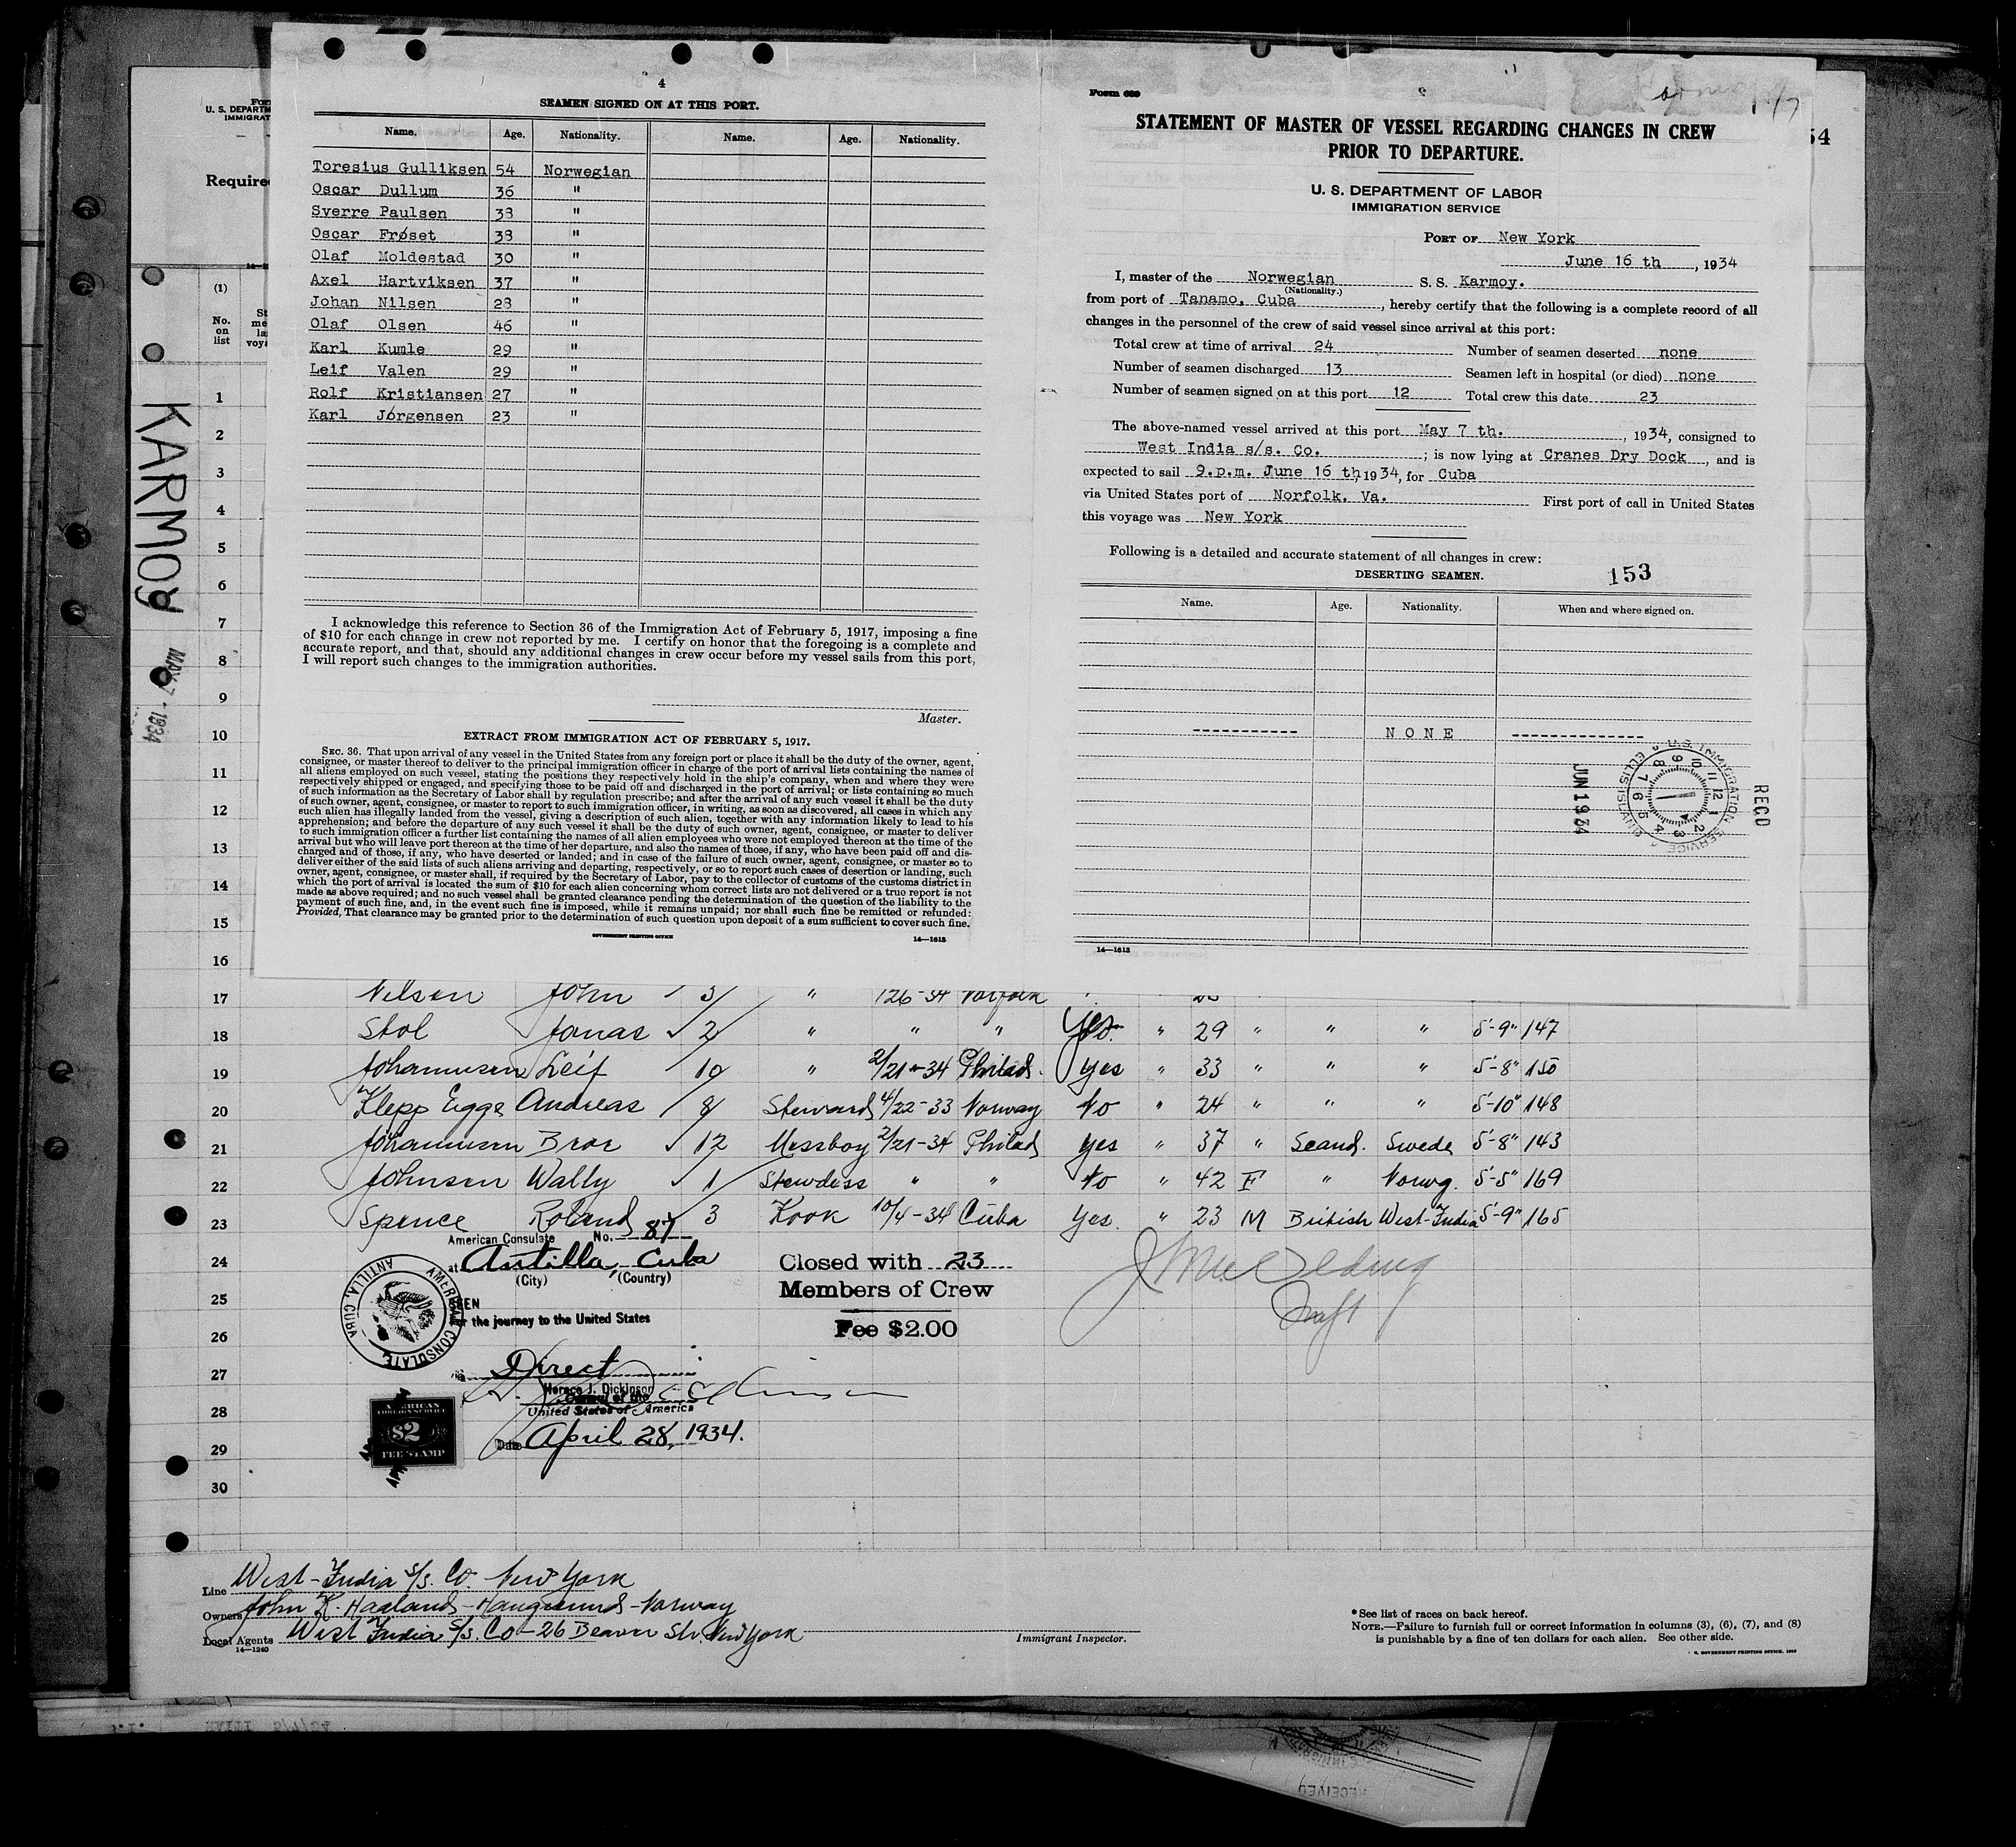 4
SEAMEN SIGNED ON AT THIS PORT.
Name. Age. Nationality. Name. Age. Nationality.
Toresius Gulliksen 54 Norwegian
Oscar Dullum 36 "
Sverre Paulsen 38 "
Oscar Frøset 38 "
Olaf Moldestad 30 "
Axel Hartviksen 37 "
Johan Nilsen 28 "
Olaf Olsen 46 "
Karl Kumle 29 "
Leif Valen 29 "
Rolf Kristiansen 27 "
Karl Jørgensen 23 "
I acknowledge this reference to Section 36 of the Immigration Act of February 5, 1917, imposing a fine
of $10 for each change in crew not reported by me. I certify on honor that the foregoing is a complete and
accurate report, and that, should any additional changes in crew occur before my vessel sails from this port,
I will report such changes to the immigration authorities.
Master.
EXTRACT FROM IMMIGRATION ACT OF FEBRUARY 5, 1917.
SEC. 36. That upon arrival of any vessel in the United States from any foreign port or place it shall be the duty of the owner, agent,
consignee, or master thereof to deliver to the principal immigration officer in charge of the port of arrival lists containing the names of
all aliens employed on such vessel, stating the positions they respectively hold in the ship's company, when and where they were
respectively shipped or engaged, and specifying those to be paid off and discharged in the port of arrival; or lists containing so much
of such information as the Secretary of Labor shall by regulation prescribe; and after the arrival of any such vessel it shall be the duty
of such owner, agent, consignee, or master to report to such immigration officer, in writing, as soon as discovered, all cases in which any
such alien has illegally landed from the vessel, giving a description of such alien, together with any information likely to lead to his
apprehension; and before the departure of any such vessel it shall be the duty of such owner, agent, consignee, or master to deliver
to such immigration officer a further list containing the names of all alien employees who were not employed thereon at the time of the
arrival but who will leave port thereon at the time of her departure, and also the names of those, if any, who have been paid off and dis-
charged and of those, if any, who have deserted or landed; and in case of the failure of such owner, agent, consignee, or master so to
deliver either of the said lists of such aliens arriving and departing, respectively, or so to report such cases of desertion or landing, such
owner, agent, consignee, or master shall, if required by the Secretary of Labor, pay to the collector of customs of the customs district in
which the port of arrival is located the sum of $10 for each alien concerning whom correct lists are not delivered or a true report is not
made as above required; and no such vessel shall be granted clearance pending the determination of the question of the liability to the
payment of such fine, and, in the event such fine is imposed, while it remains unpaid; nor shall such fine be remitted or refunded:
Provided, That clearance may be granted prior to the determination of such question upon deposit of a sum sufficient to cover such fine.
GOVERNMENT PRINTING OFFICE 14—1613
Form 689
STATEMENT OF MASTER OF VESSEL REGARDING CHANGES IN CREW
PRIOR TO DEPARTURE.
U. S. DEPARTMENT OF LABOR
IMMIGRATION SERVICE
PORT OF New York
June 16 th, 1934
I, master of the Norwegian S. S. Karmoy.
(Nationality.)
from port of Tanamo, Cuba, hereby certify that the following is a complete record of all
changes in the personnel of the crew of said vessel since arrival at this port:
Total crew at time of arrival 24 Number of seamen deserted none
Number of seamen discharged 13 Seamen left in hospital (or died) none
Number of seamen signed on at this port 12 Total crew this date 23
The above-named vessel arrived at this port May 7 th., 1934, consigned to
West India s/s. Co.; is now lying at Cranes Dry Dock, and is
expected to sail 9.p.m. June 16 th, 1934, for Cuba
via United States port of Norfolk. Va. First port of call in United States
this voyage was New York
Following is a detailed and accurate statement of all changes in crew:
DESERTING SEAMEN. 153
Name. Age. Nationality. When and where signed on.
NONE
RECD
U.S. IMMIGRATION SERVICE
JUN 1934
14—1613
54
U. S. DEPARTM
IMMIGRAT
Require
(1)
No.
on
list
KARMOY
MAY 7 - 1934
1
2
3
4
5
6
7
8
9
10
11
12
13
14
15
16
17 Nelson John 3/ " 1/26-34 Norfolk
18 Stol Jonas 2/ " " " Yes. " 29 " " " 5'-9" 147
19 Johannesen Leif 10 " 2/21-34 Philad. Yes " 33 " " " 5'-8" 150
20 Klepp Egge Andreas 8 Steward 4/22-33 Norway No " 24 " " " 5'-10" 148
21 Johannesen Bror 12 Messboy 2/21-34 Philad Yes " 37 " Scand. Swede 5'-8" 143
22 Johnsen Wally 1 Stewdess " " No " 42 F " Norwg. 5'-5" 169
23 Spence Roland 3 Kook 10/4-34 Cuba Yes. " 23 M British West-India 5'-9" 165
24
25
26
27
28
29
30
American Consulate No. 87
at Antilla, Cuba
(City) (Country)
SEEN
For the journey to the United States
Direct
Horace J. Dickinson
Consul of the
United States of America
Date April 28, 1934.
AMERICAN CONSULATE
ANTILLA, CUBA
AMERICAN
FOREIGN SERVICE
$2
FEE STAMP
Closed with 23
Members of Crew
Fee $2.00
Line West-India S/s. Co. New York
Owners John K. Haaland-Haugesund-Norway
Local Agents West India S/s. Co-26 Beaver Str. New York
14—1240
Immigrant Inspector.
*See list of races on back hereof.
NOTE.—Failure to furnish full or correct information in columns (3), (6), (7), and (8)
is punishable by a fine of ten dollars for each alien. See other side.